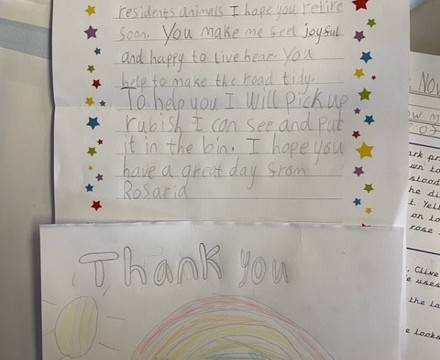 residents animals I hope you retire
soon. You make me feel joyful
and happy to live hear. You
help to make the road tidy.
To help you I will pick up
rubish I can see and put
it in the bin. I hope you
have a great day from
Rosaria
Thank you